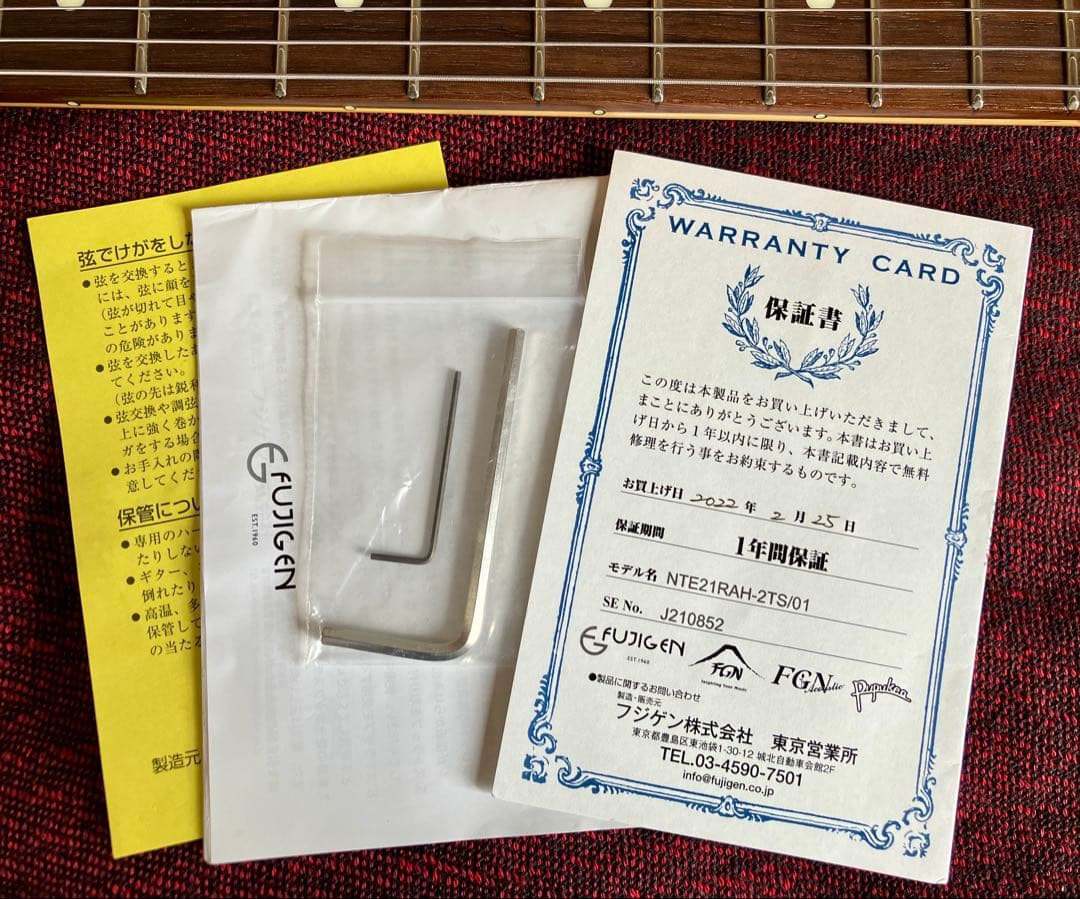 弦でけがをしな
●弦を交換すると
には、弦に顔を
（弦が切れて目や
ことがあります
の危険がありま
●弦を交換したあ
てください。
（弦の先は鋭利
●弦交換や調弦
上に強く巻か
ガをする場合
●お手入れの際
意してくだ
保管につい
●専用のハー
たりしない
●ギター、
倒れたり
●高温、多
保管して
の当たる
製造元
FUJIGEN
EST.1960
WARRANTY CARD
保証書
この度は本製品をお買い上げいただきまして、
まことにありがとうございます。本書はお買い上
げ日から1年以内に限り、本書記載内容で無料
修理を行う事をお約束するものです。
お買上げ日 2022 年 2 月 25 日
保証期間 1年間保証
モデル名 NTE21RAH-2TS/01
SE No. J210852
FUJIGEN
EST.1960
FGN
Inspiring Your Music
FGN Acoustic
●製品に関するお問い合わせ
製造・販売元
フジゲン株式会社 東京営業所
東京都豊島区東池袋1-30-12 城北自動車会館2F
TEL.03-4590-7501
info@fujigen.co.jp